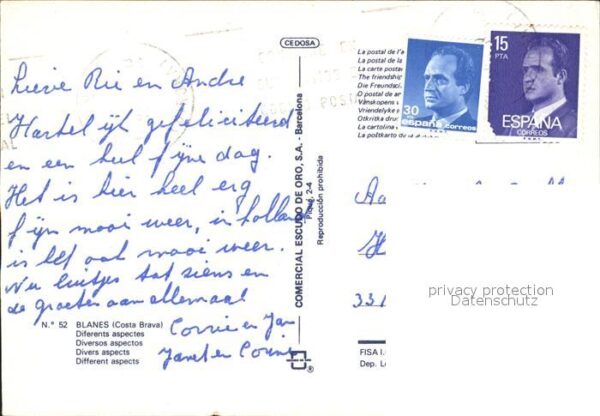 CEDOSA
Lieve Rie en Andre
Hartelijk gefeliciteerd
en een heel fijne dag.
Het is hier heel erg
fijn mooi weer, in holland
is het ook mooi weer.
Nu luitjes tot ziens en
de groeten aan allemaal
Corrie en Jan
Janet en Corine
N.º 52 BLANES (Costa Brava)
Diferents aspectes
Diversos aspectos
Divers aspects
Different aspects
COMERCIAL ESCUDO DE ORO, S.A. - Barcelona
2-4
Reproducción prohibida
®
La postal de l'a
La postal de la
La carte postal
The friendship
Die Freundsch
O postal da
Vänskapens
Vriendelijke
Otkritka druz
La cartolina
La poštkarto de
30
españa correos
15
PTA
ESPAÑA
CORREOS
Aa
H
331
privacy protection
Datenschutz
FISA I.
Dep. L